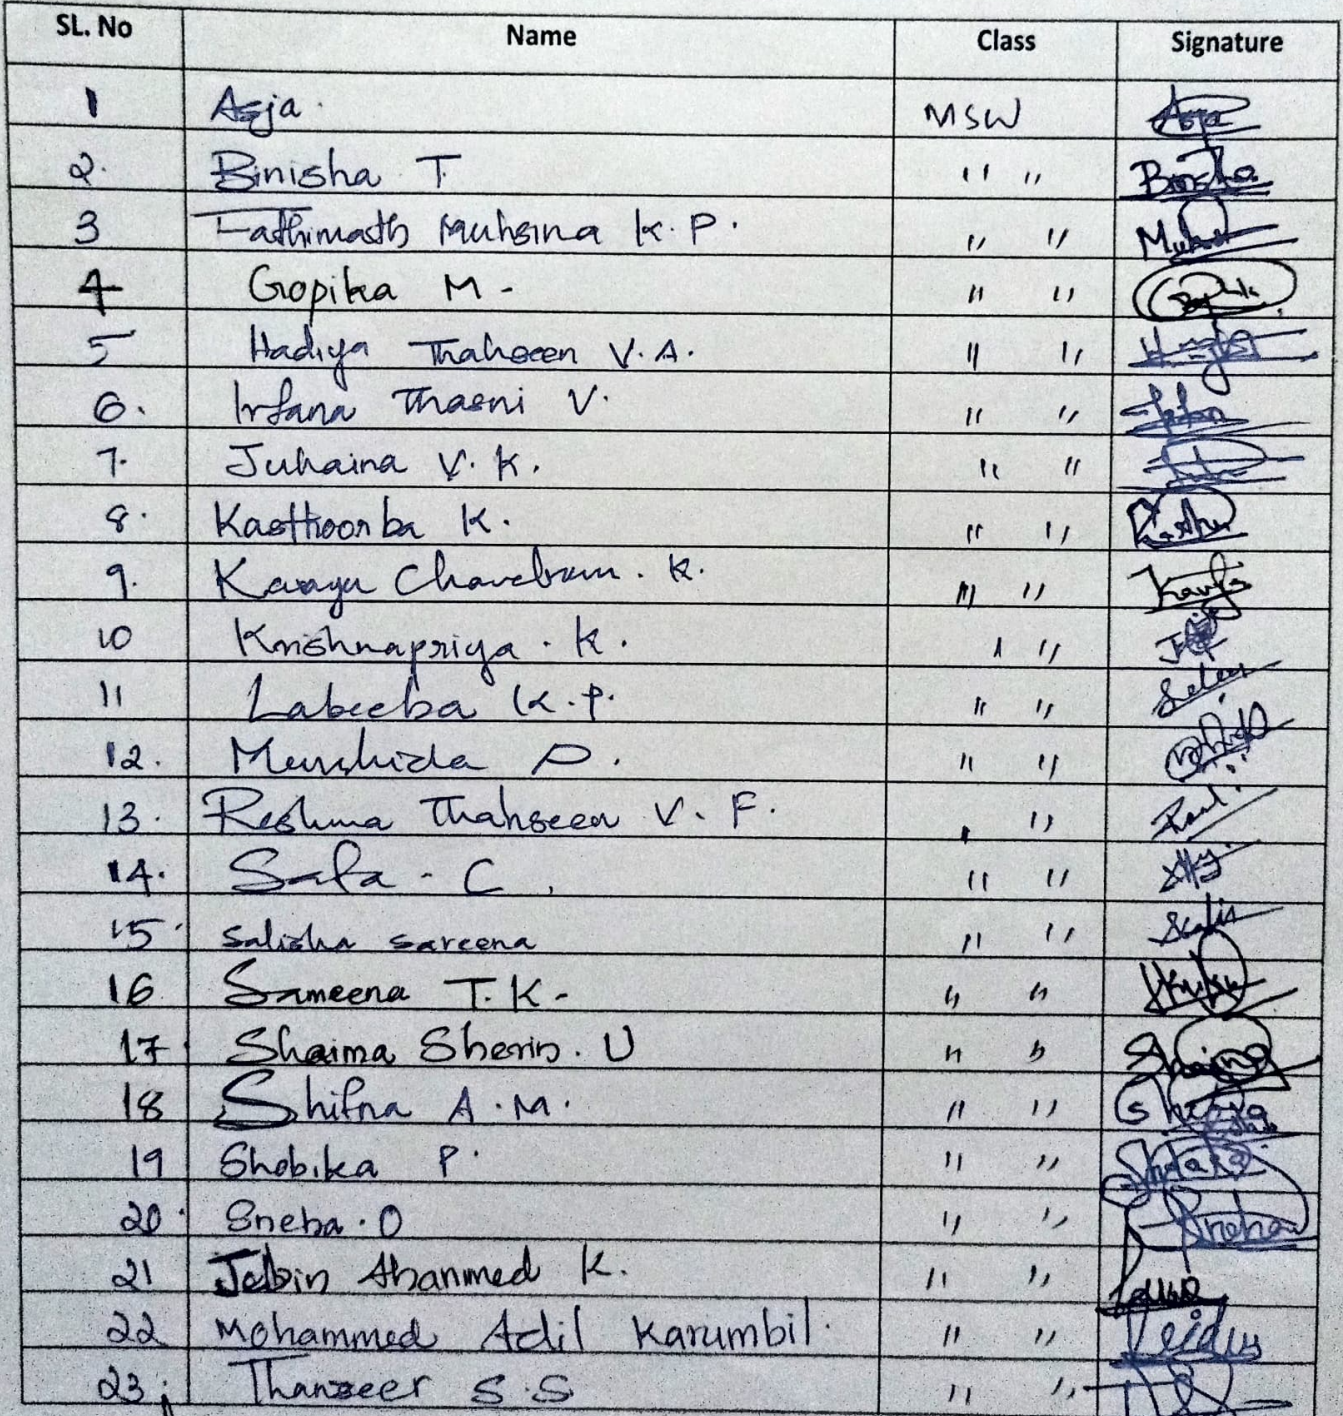 SL. No Name Class Signature
1 Asja. MSW Asja
2. Binisha T " " Binisha
3 Fathimath Muhsina K.P. " "
4 Gopika M - " "
5 Hadiya Thahseen V.A. " "
6. Irfana Thasni V. " "
7. Juhaina V.K. " "
8. Kasthoorba K. " "
9. K. " "
10 Krishnapriya. K. " "
11 Labeeba K.P. " "
12. Murshida P. " "
13. Reshma Thahseen V. F. "
14. Safa - C. " "
15. Salisha Sareena " "
16 Sameena T.K- " "
17 Shaima Sherin. U " " Shaima
18 Shifna A.M. " "
19 Shobika P. " "
20. Sneha.O " " Sneha
21 Jebin Ahanmed K. " "
22 Mohammed Adil Karumbil. " "
23. Thanseer S.S " "